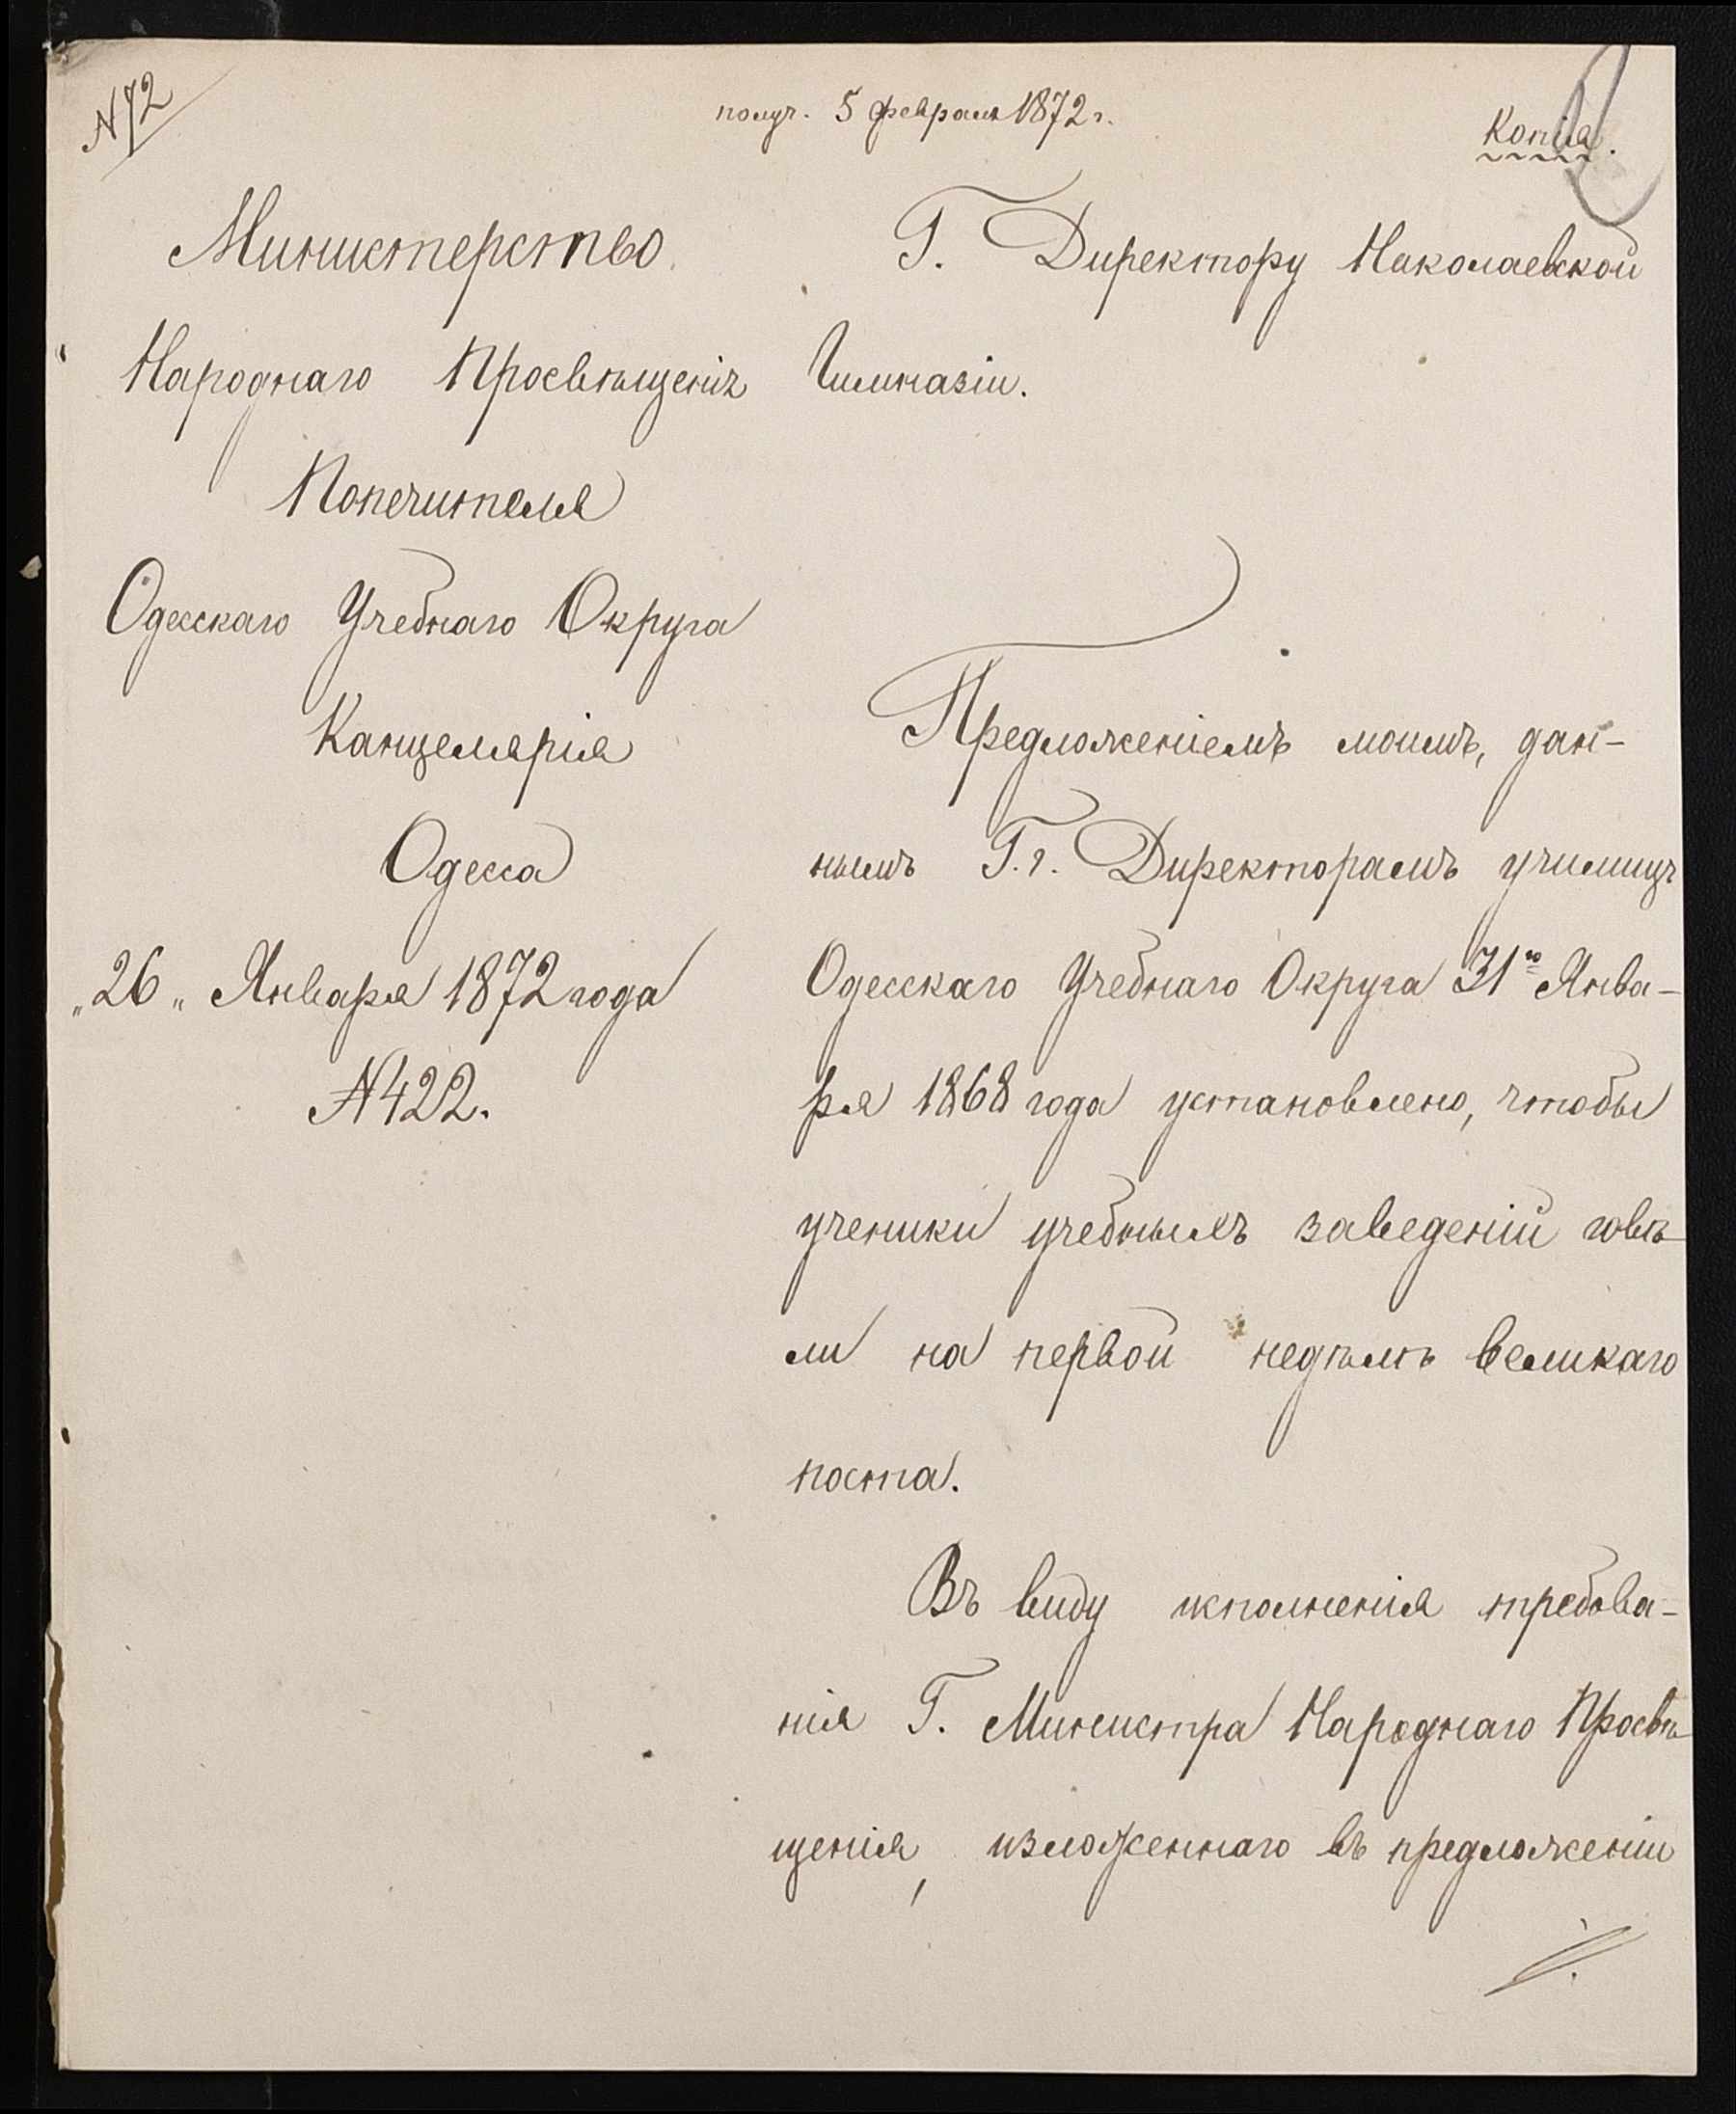 N 72
получ. 5 февраля 1872 г.
Копія.
Министерство
Народнаго Просвѣщенія
Попечителя
Одесскаго Учебнаго Округа
Канцелярія
Одесса
„26„ Января 1872 года
N 422.
Г. Директору Николаевской
Гимназіи.
Предложеніемъ моимъ, дан-
нымъ Г.г. Директорамъ училищъ
Одесскаго Учебнаго Округа 31го Янва-
ря 1868 года установлено, чтобы
ученики учебныхъ заведеній говѣ-
ли на первой недѣлѣ великаго
поста.
Въ виду исполненія требова-
нія Г. Министра Народнаго Просвѣ-
щенія, изложеннаго въ предложеніи